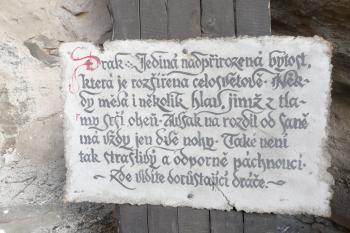 Drak - Jediná nadpřirozená bytost,
která je rozšířena celosvětově. Něk-
dy mívá i několik hlav, jimž z tla-
my srší oheň. Avšak na rozdíl od saně
má vždy jen dvě nohy. Také není
tak strašlivý a odporně páchnoucí.
~ Zde vidíte dorůstající dráče. ~